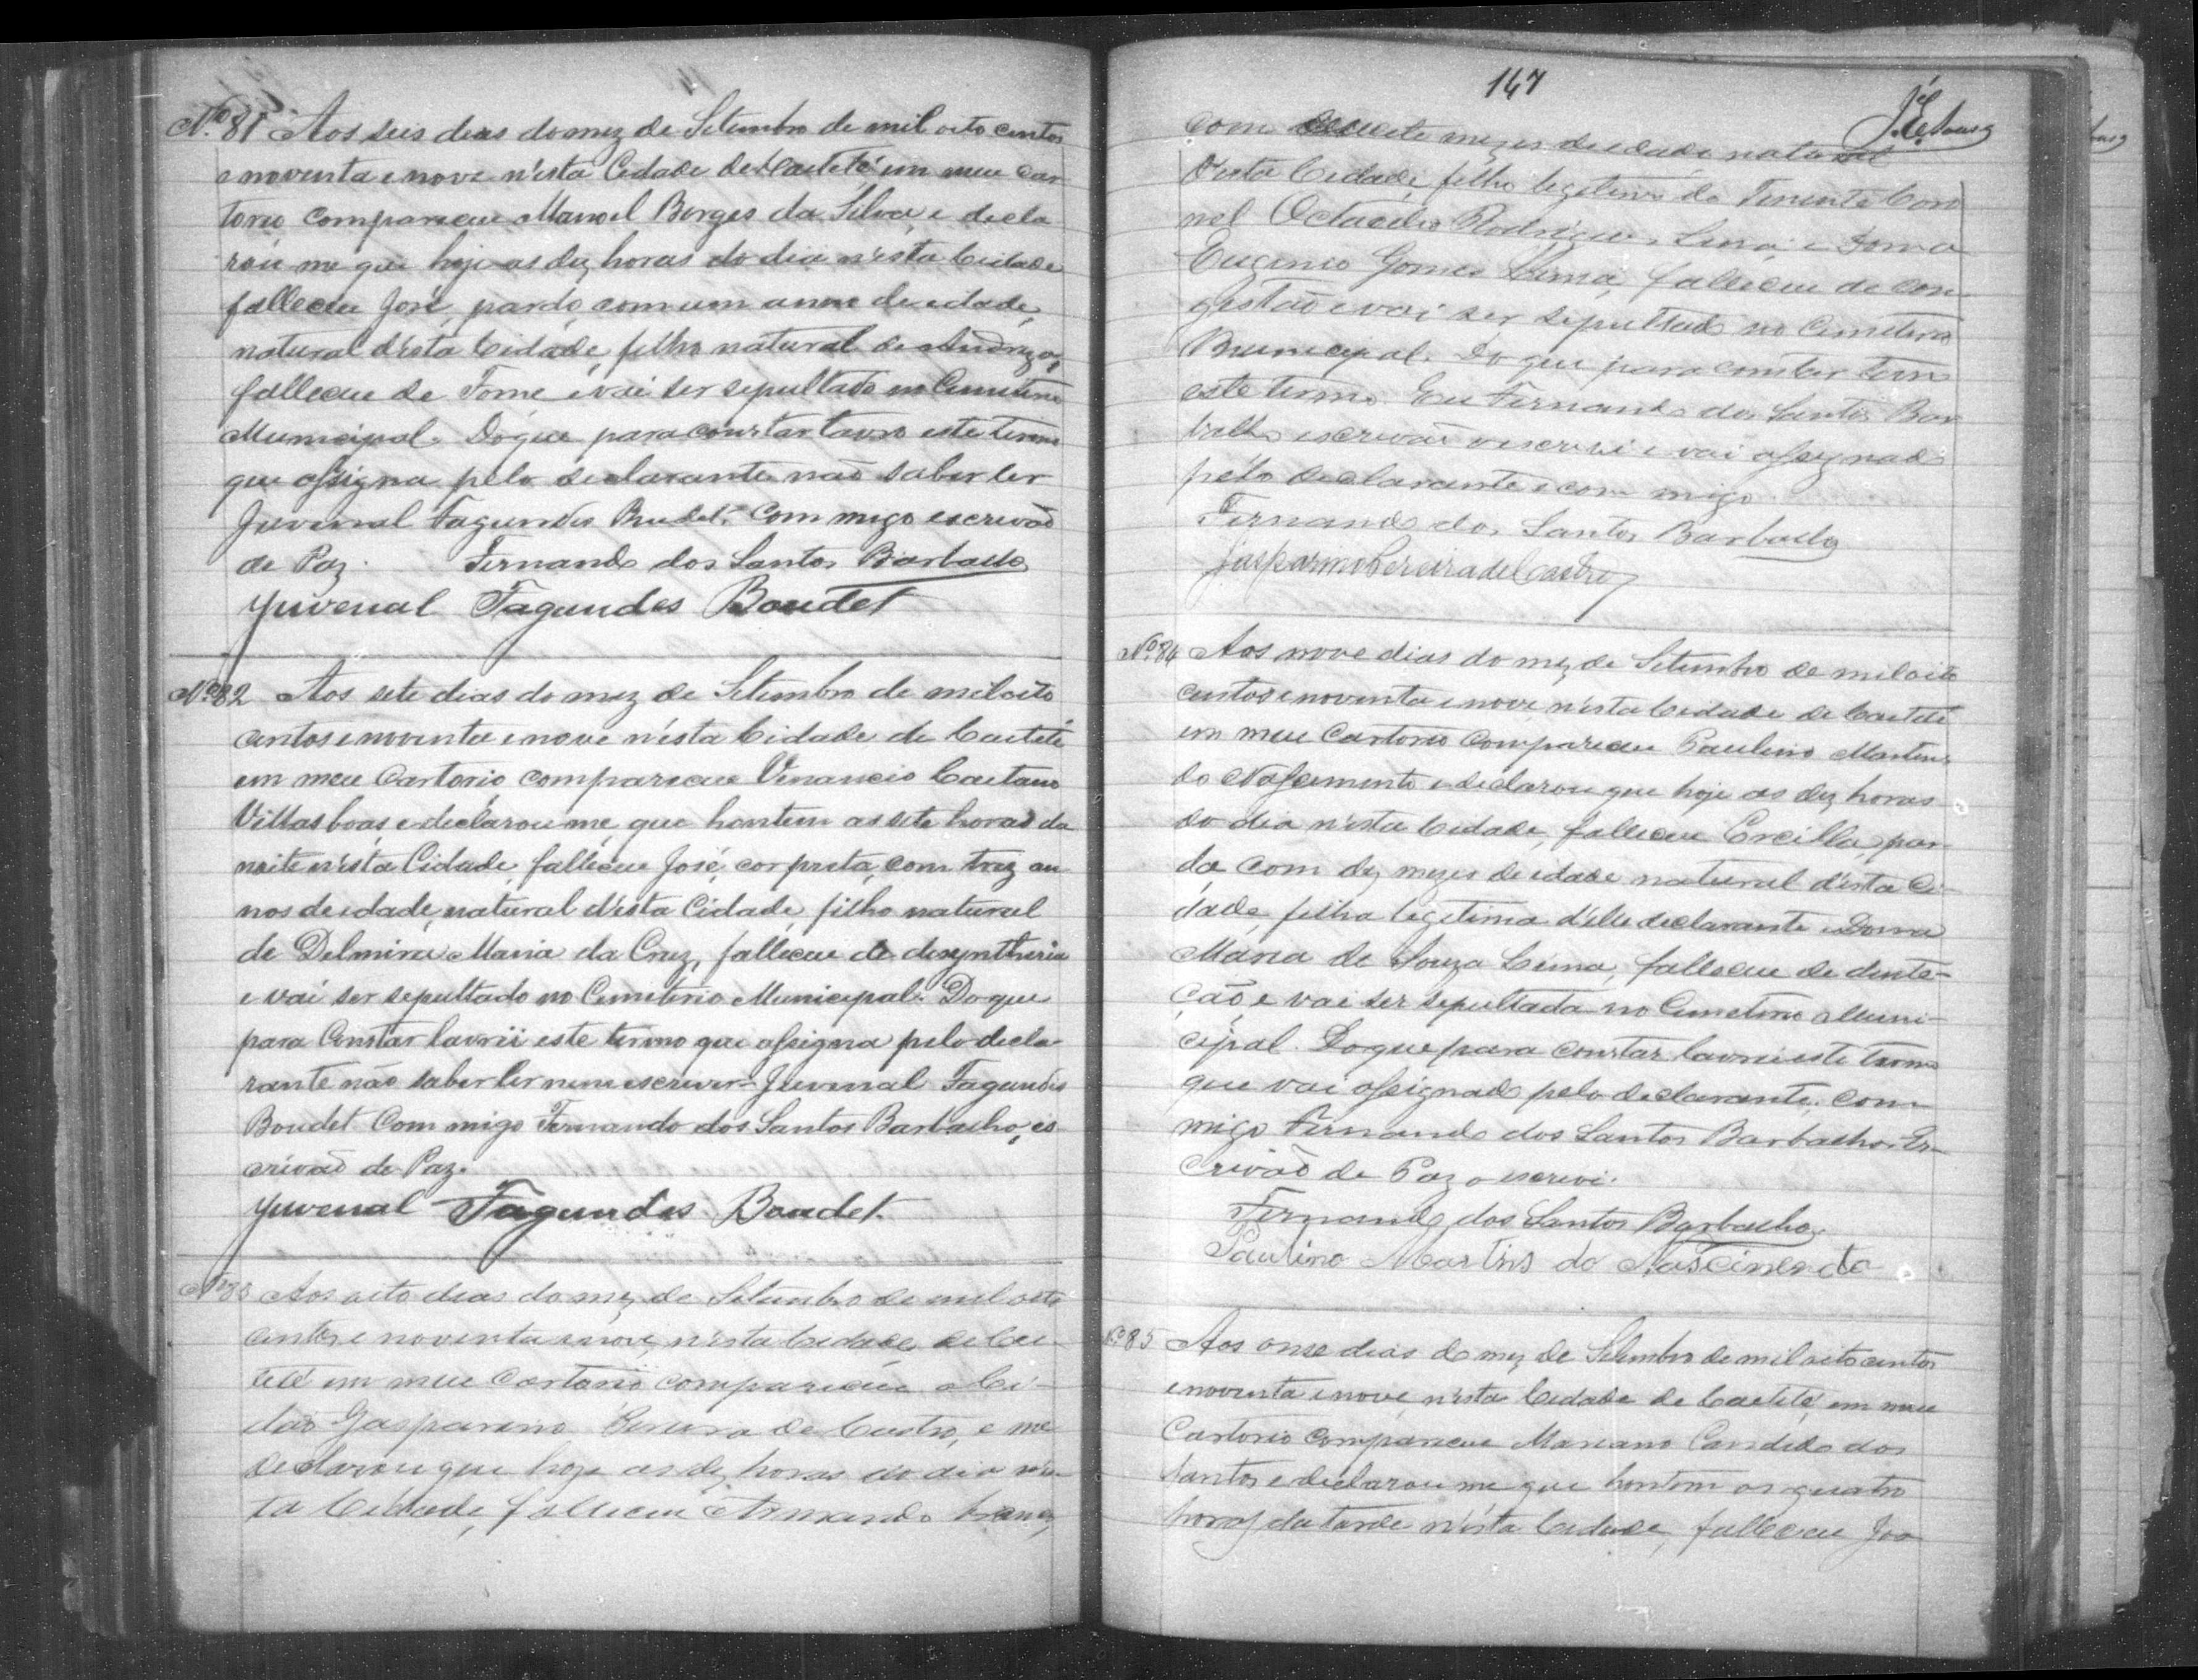 Nº 81 Aos seis dias do mez de Setembro de mil oito centos
e noventa e nove n'esta Cidade de Caeteté em meu car
torio compareceu Manoel Borges da Silva e decla
rou me que hoje as dez horas do dia n'esta Cidade
falleceu José, pardo, com um anno de edade,
natural d'esta Cidade, filho natural de
falleceu de Fome e vai ser sepultado no Cemiterio
Municipal. Do que para constar lavro este termo
que assigna pelo declarante não saber ler
Juvenal Fagundes Budet. Com migo escrivão
de Paz. Fernando dos Santos Barbalho
Juvenal Fagundes Boudet
Nº 82 Aos sete dias do mez de Setembro de mil oito
centos e noventa e nove n'esta Cidade de Caeteté
em meu Cartorio compareceu Venancio Caetano
Villasboas e declarou me que hontem as sete horas da
noite n'esta Cidade falleceu José, cor preta, com trez an
nos de edade, natural d'esta Cidade, filho natural
de Delmira Maria da Cruz, falleceu de desyntheria
e vai ser sepultado no Cemiterio Municipal. Do que
para Constar lavrei este termo que assigna pelo decla-
rante não saber ler nem escrever Juvenal Fagundes
Boudet Com migo Fernando dos Santos Barbalho, es
crivão de Paz.
Juvenal Fagundes Boudet.
Nº 83 Aos oito dias do mez de Setembro de mil oito
centos e noventa e nove, n'esta Cidade de Cae-
teté em meu Cartorio compareceu o Ci-
dão Gasparino Pereira de Castro, e me
declarou que hoje as dez horas do dia n'es-
ta Cidade, falleceu Armando branco,
147
com mezes de edade natural
d'esta Cidade, filho legitimo do Tenente Coro
nel Octacilio Rodrigues Lima e Dona
Eugenia Gomes Lima, falleceu de con-
gestão e vai ser sepultado no Cemiterio
Municipal. Do que para constar
este termo. Eu Fernando dos Santos Bar
balho escrivão o escrevi e vai assignado
pelo declarante e com migo.
Fernando dos Santos Barbalho
Gasparino Pereira de Castro
Nº 84 Aos nove dias do mez de Setembro de mil oito
centos e noventa e nove n'esta Cidade de Caeteté
em meu Cartorio compareceu Paulino Martins
do Nascimento e declarou que hoje as dez horas
do dia n'esta Cidade, falleceu Ercilla, par
da com dez mezes de idade natural d'esta Ci-
dade, filha legitima d'elle declarante e Dona
Maria de Souza Lima, falleceu de dente-
ção, e vai ser sepultada no Cemiterio Muni-
cipal. Do que para constar lavrei este termo
que vai assignado pelo declarante, com
migo Fernando dos Santos Barbalho. Es-
crivão de Paz o escrevi.
Fernando dos Santos Barbalho
Paulino Martins do Nascimento
Nº 85 Aos onse dias do mez de Setembro de mil oito centos
e noventa e nove, n'esta Cidade de Caeteté, em meu
Cartorio compareceu Mariano Candido dos
Santos e declarou me que hontem as quatro
horas da tarde n'esta Cidade, falleceu Joa